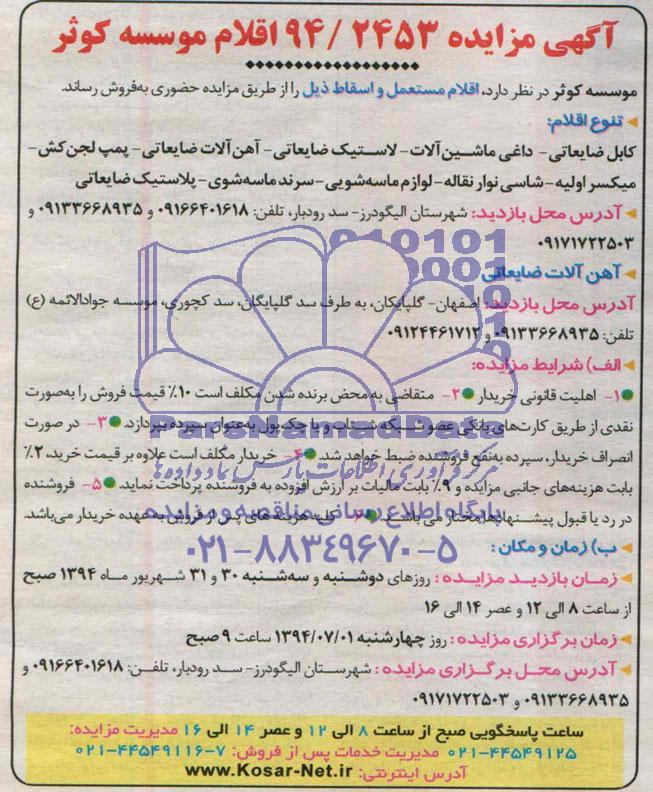 آگهی مزایده ۹۴/۲۴۵۳ اقلام موسسه کوثر
موسسه کوثر در نظر دارد، اقلام مستعمل و اسقاط ذیل را از طریق مزایده حضوری به‌فروش رساند.
تنوع اقلام:
کابل ضایعاتی- داغی ماشین‌آلات- لاستیک ضایعاتی- آهن‌آلات ضایعاتی- پمپ لجن‌کش-
میکسر اولیه- شاسی نوار نقاله- لوازم ماسه‌شویی- سرند ماسه‌شوی- پلاستیک ضایعاتی
آدرس محل بازدید: شهرستان الیگودرز- سد رودبار، تلفن: ۰۹۱۶۶۴۰۱۶۱۸ و ۰۹۱۳۳۶۶۸۹۳۵ و
۰۹۱۷۱۷۲۲۵۰۳
010101
0001
10
آهن آلات ضایعاتی
آدرس محل بازدید: اصفهان- گلپایگان، به طرف سد گلپایگان، سد کچوری، موسسه جوادالائمه (ع)
تلفن: ۰۹۱۳۳۶۶۸۹۳۵ و ۰۹۱۲۴۴۶۱۷۱۲
الف) شرایط مزایده:
۱- اهلیت قانونی خریدار ۲- متقاضی به محض برنده شدن مکلف است ۱۰٪ قیمت فروش را به‌صورت
نقدی از طریق کارت‌های بانکی عضو شبکه شتاب و یا چک‌پول به‌عنوان سپرده بپردازد. ۳- در صورت
ParsNamadData
انصراف خریدار، سپرده به‌نفع فروشنده ضبط خواهد شد. ۴- خریدار مکلف است علاوه بر قیمت خرید، ۲٪
مرکز فرآوری اطلاعات پارس نماد داده‌ها
بابت هزینه‌های جانبی مزایده و ۹٪ بابت مالیات بر ارزش افزوده به فروشنده پرداخت نماید. ۵- فروشنده
در رد یا قبول پیشنهادها مختار می‌باشد. ۶- کلیه هزینه های پس از فروش به عهده خریدار می‌باشد.
پایگاه اطلاع رسانی مناقصه و مزایده
ب) زمان و مکان:
۰۲۱-۸۸۳۴۹۶۷۰-۵
زمان بازدید مزایده: روزهای دوشنبه و سه‌شنبه ۳۰ و ۳۱ شهریور ماه ۱۳۹۴ صبح
از ساعت ۸ الی ۱۲ و عصر ۱۴ الی ۱۶
زمان برگزاری مزایده: روز چهارشنبه ۱۳۹۴/۰۷/۰۱ ساعت ۹ صبح
آدرس محل برگزاری مزایده: شهرستان الیگودرز- سد رودبار، تلفن: ۰۹۱۶۶۴۰۱۶۱۸ و
۰۹۱۳۳۶۶۸۹۳۵ و ۰۹۱۷۱۷۲۲۵۰۳
ساعت پاسخگویی صبح از ساعت ۸ الی ۱۲ و عصر ۱۴ الی ۱۶ مدیریت مزایده:
۰۲۱-۴۴۵۴۹۱۲۵ مدیریت خدمات پس از فروش: ۷-۰۲۱-۴۴۵۴۹۱۱۶
آدرس اینترنتی: www.Kosar-Net.ir